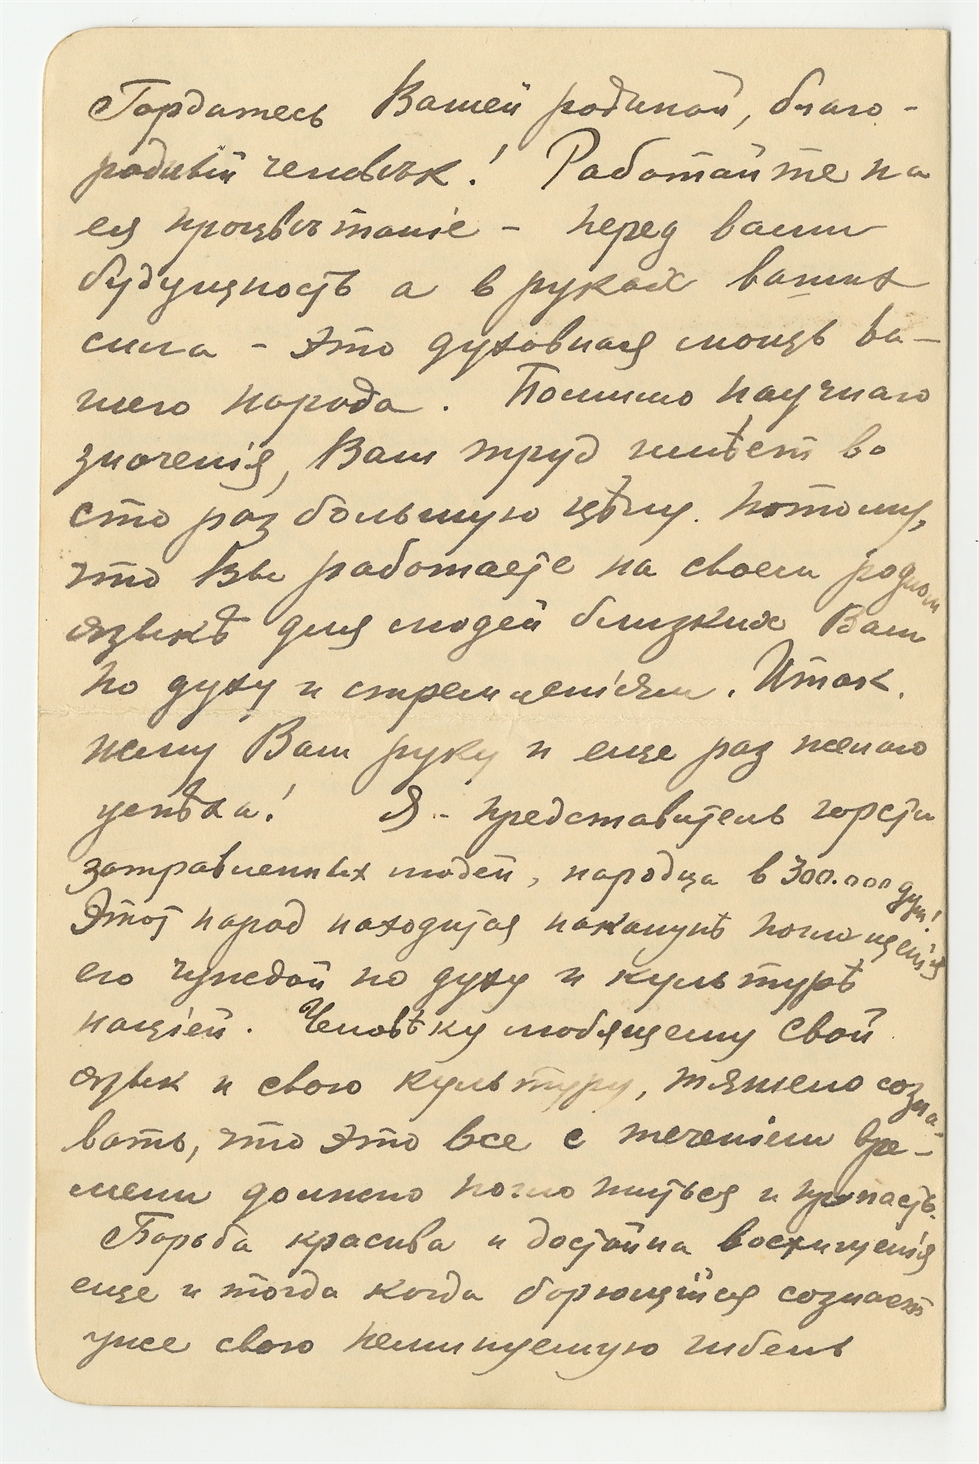 Гордитесь Вашей родиной, благо-
родный человѣк! Работайте на
ея процвѣтаніе - перед вами
будущность а в руках ваших
сила - это духовная мощь ва-
шего народа. Помимо научнаго
значенія, Ваш труд имѣет во
сто раз большую цѣну. потому,
что Вы работаете на своем родном
языкѣ для людей близких Вам
по духу и стремленіям. Итак.
жму Вам руку и еще раз желаю
успѣха! Я - представитель горсти
затравленных людей, народца в 300.000 душ!
Этот народ находится наканунѣ поглощенія
его чуждой по духу и культурѣ
націей. Человѣку любящему свой
язык и свою культуру, тяжело созна-
вать, что это все с теченіем вре-
мени должно поглотиться и пропасть.
Борьба красива и достойна восхищенія
еще и тогда когда борющійся сознает
уже свою неминуемую гибель